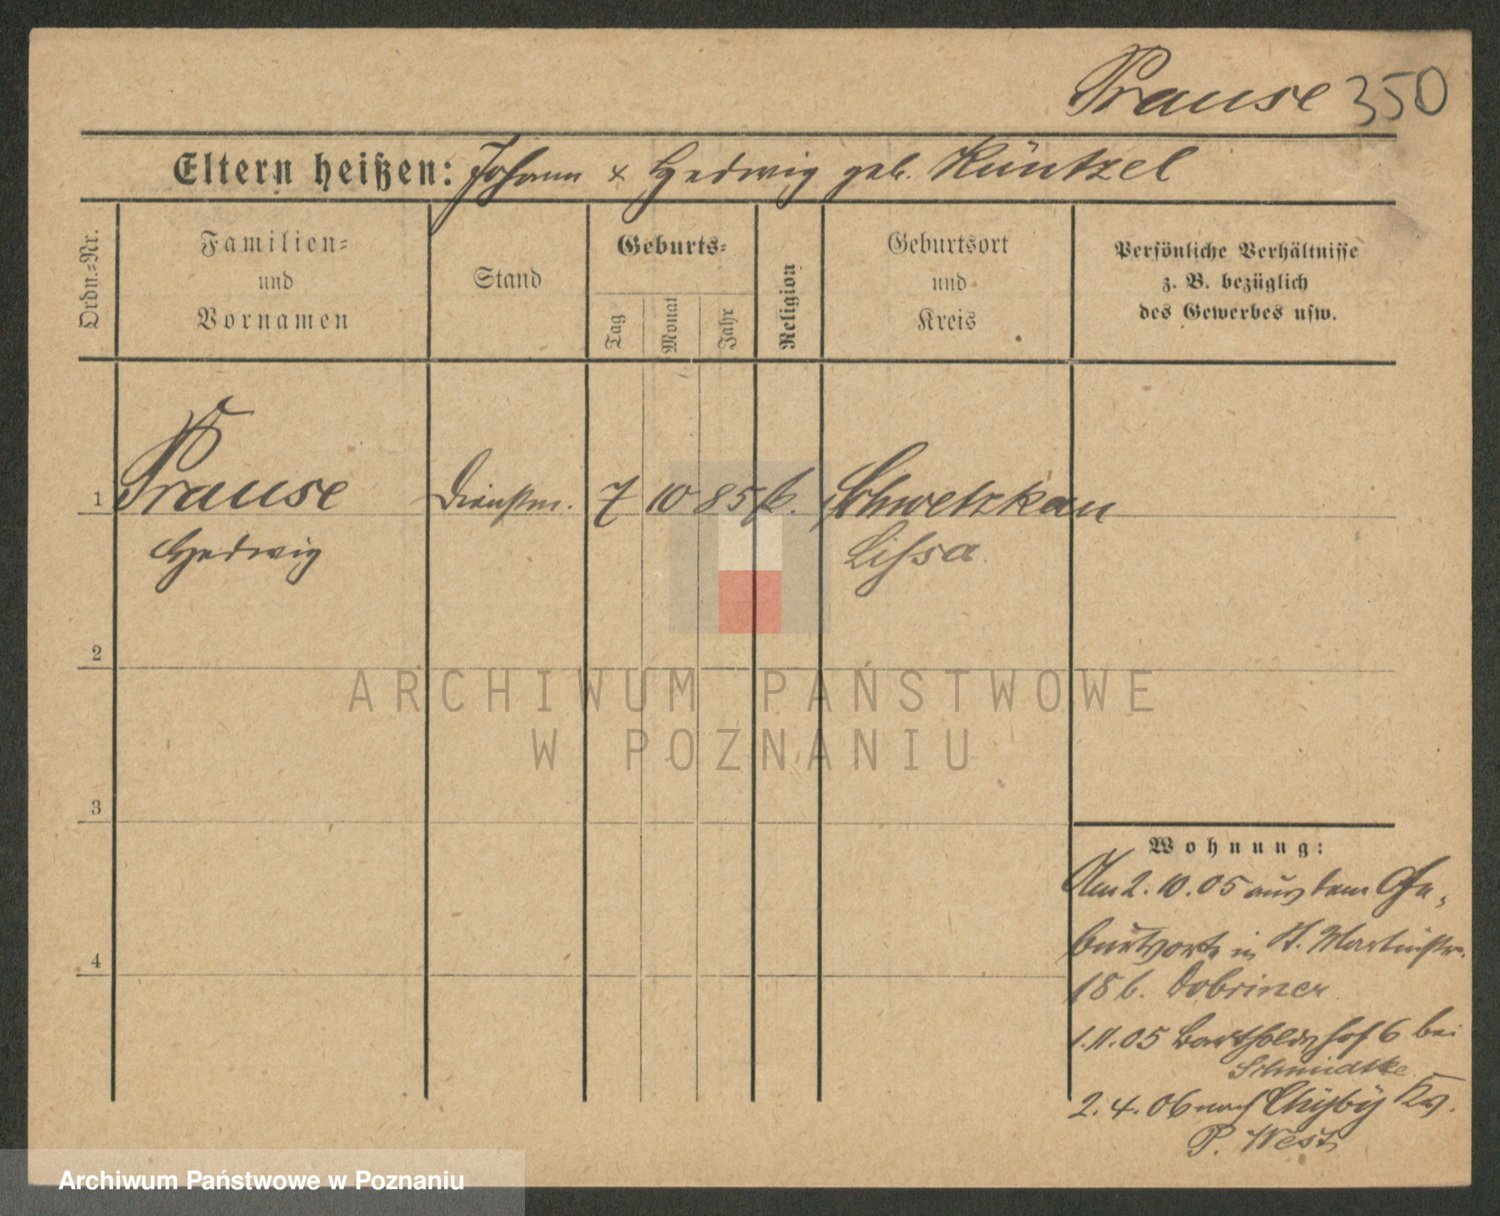 Prause 350
Eltern heißen: Johann x Hedwig geb. Küntzel
Ordn.-Nr.
Familien-
und
Vornamen
Stand
Geburts-
Tag
Monat
Jahr
Religion
Geburtsort
und
Kreis
Persönliche Verhältnisse
z. B. bezüglich
des Gewerbes usw.
1 Prause Dienstm. 7 10 85 k. Schwetzkau
Hedwig Lissa.
2
3
4
Wohnung:
Am 2. 10. 05 aus dem Ge-
burtsorte in St. Martinstr.
18 b. Dobriner
1. 11. 05 Bartholdshof 6 bei
Schmidtke
2. 4. 06 nach Chyby Krs.
P. West
ARCHIWUM PAŃSTWOWE
W POZNANIU
Archiwum Państwowe w Poznaniu